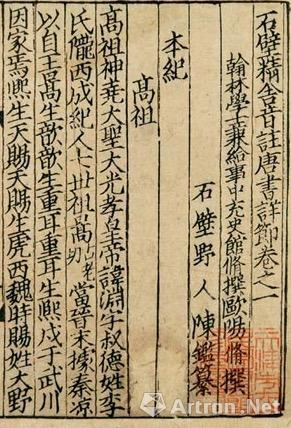 石壁精舍音註唐書詳節卷之一
翰林學士兼給事中充史館脩撰歐陽脩撰
石壁野人陳鑑纂
本紀
高祖
高祖神堯大聖大光孝皇帝諱淵字叔德姓李
氏隴西成紀人七世祖暠當晉末據秦凉
以自王暠生歆歆生重耳重耳生熙戍于武川
因家焉熙生天賜天賜生虎西魏時賜姓大野
Artron.Net